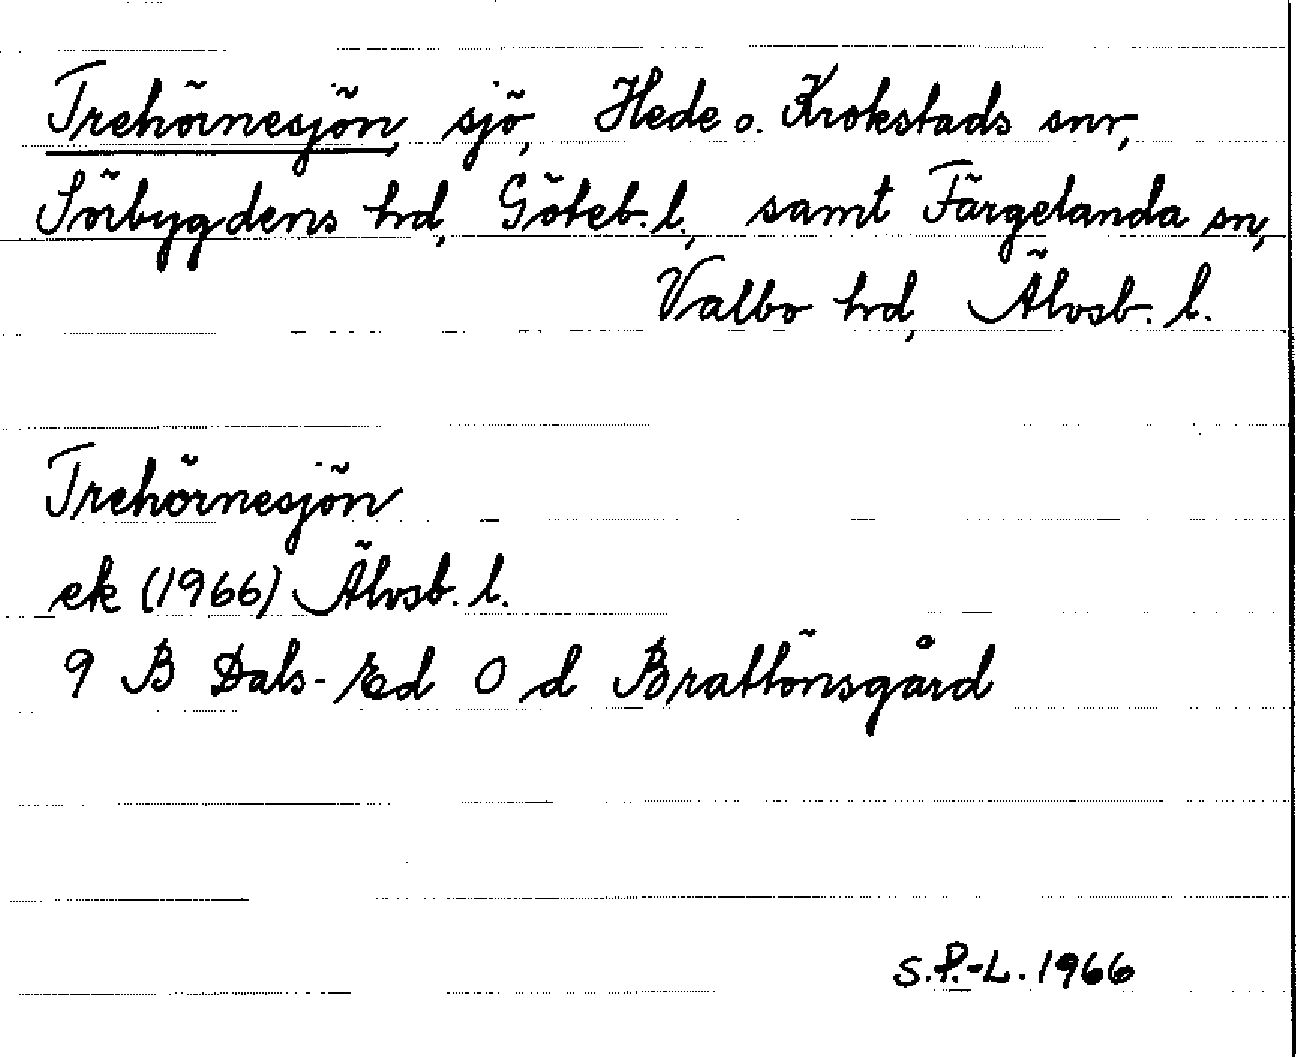 Trehörnesjön, sjö, Hede o. Krokstads snr,
Sörbygdens hrd, Göteb. l., samt Färgelanda sn,
Valbo hrd, Älvsb. l.
Trehörnesjön
ek (1966) Älvsb. l.
9 B Dals-Ed 0 d Brattönsgård
S.P.-L. 1966